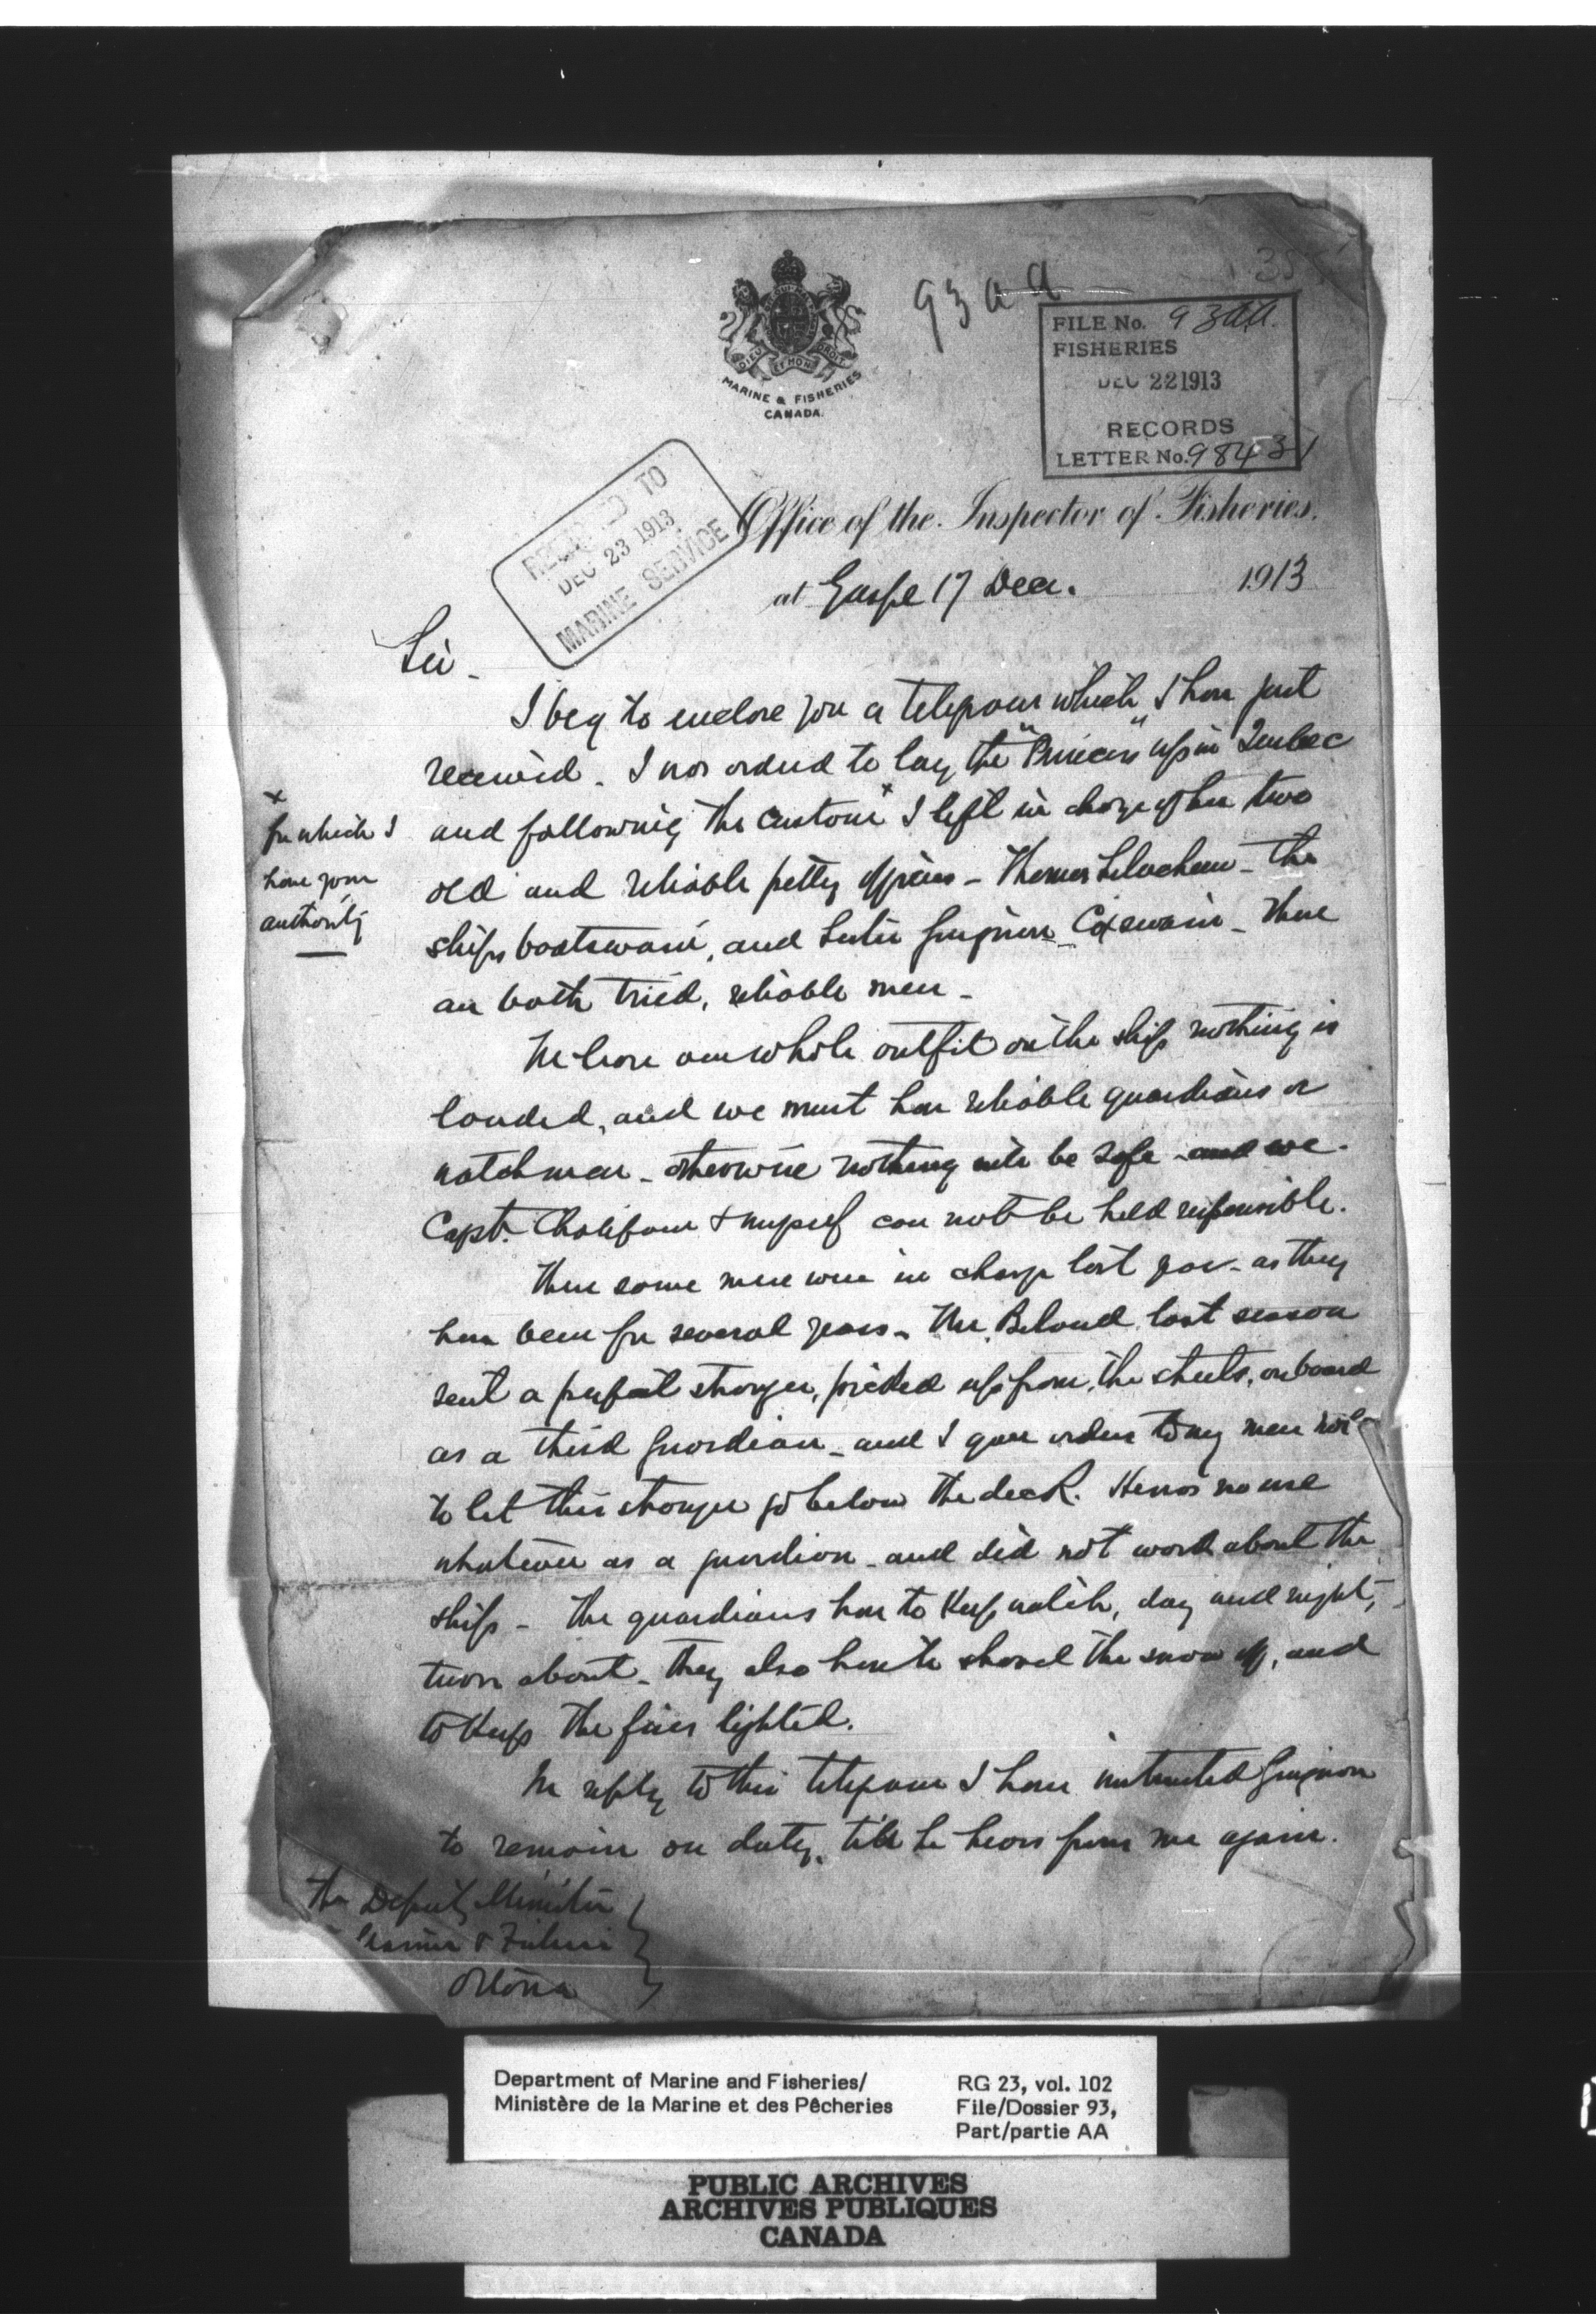 93 a a
DIEU ET MON DROIT
MARINE & FISHERIES
CANADA.
FILE No. 93AA.
FISHERIES
DEC 22 1913
RECORDS
LETTER No. 98431
REFERRED TO
DEC 23 1913
MARINE SERVICE
Office of the Inspector of Fisheries.
at Gaspe 17 Decr. 1913
Sir -
I beg to enclose you a telegram which I have just
received. I was ordered to lay the "Princess" up in Quebec
and following the custom x I left in charge of her two
x
for which I
have your
authority
old and reliable petty officers - Thomas - the
ships boatswain, and Grignon - Coxswain - These
are both tried, reliable men -
We have our whole outfit on the ship nothing is
landed, and we must have reliable guardians or
watchmen - otherwise nothing will be safe - and we -
Capt. Chalifour & myself can not be held responsible.
These same men were in charge last year - as they
have been for several years - Mr. Beland last season
sent a perfect stranger, picked up from the streets, on board
as a third guardian - and I gave orders to my men not
to let this stranger go below the deck. He was no use
whatever as a guardian - and did not work about the
ship - The guardians have to keep watch, day and night,
turn about - they also have to shovel the snow off, and
to keep the fires lighted.
In reply to this telegram I have instructed Grignon
to remain on duty, till he hears from me again.
The Deputy Minister
Marine & Fisheries
Ottawa
Department of Marine and Fisheries/
Ministère de la Marine et des Pêcheries
RG 23, vol. 102
File/Dossier 93,
Part/partie AA
PUBLIC ARCHIVES
ARCHIVES PUBLIQUES
CANADA